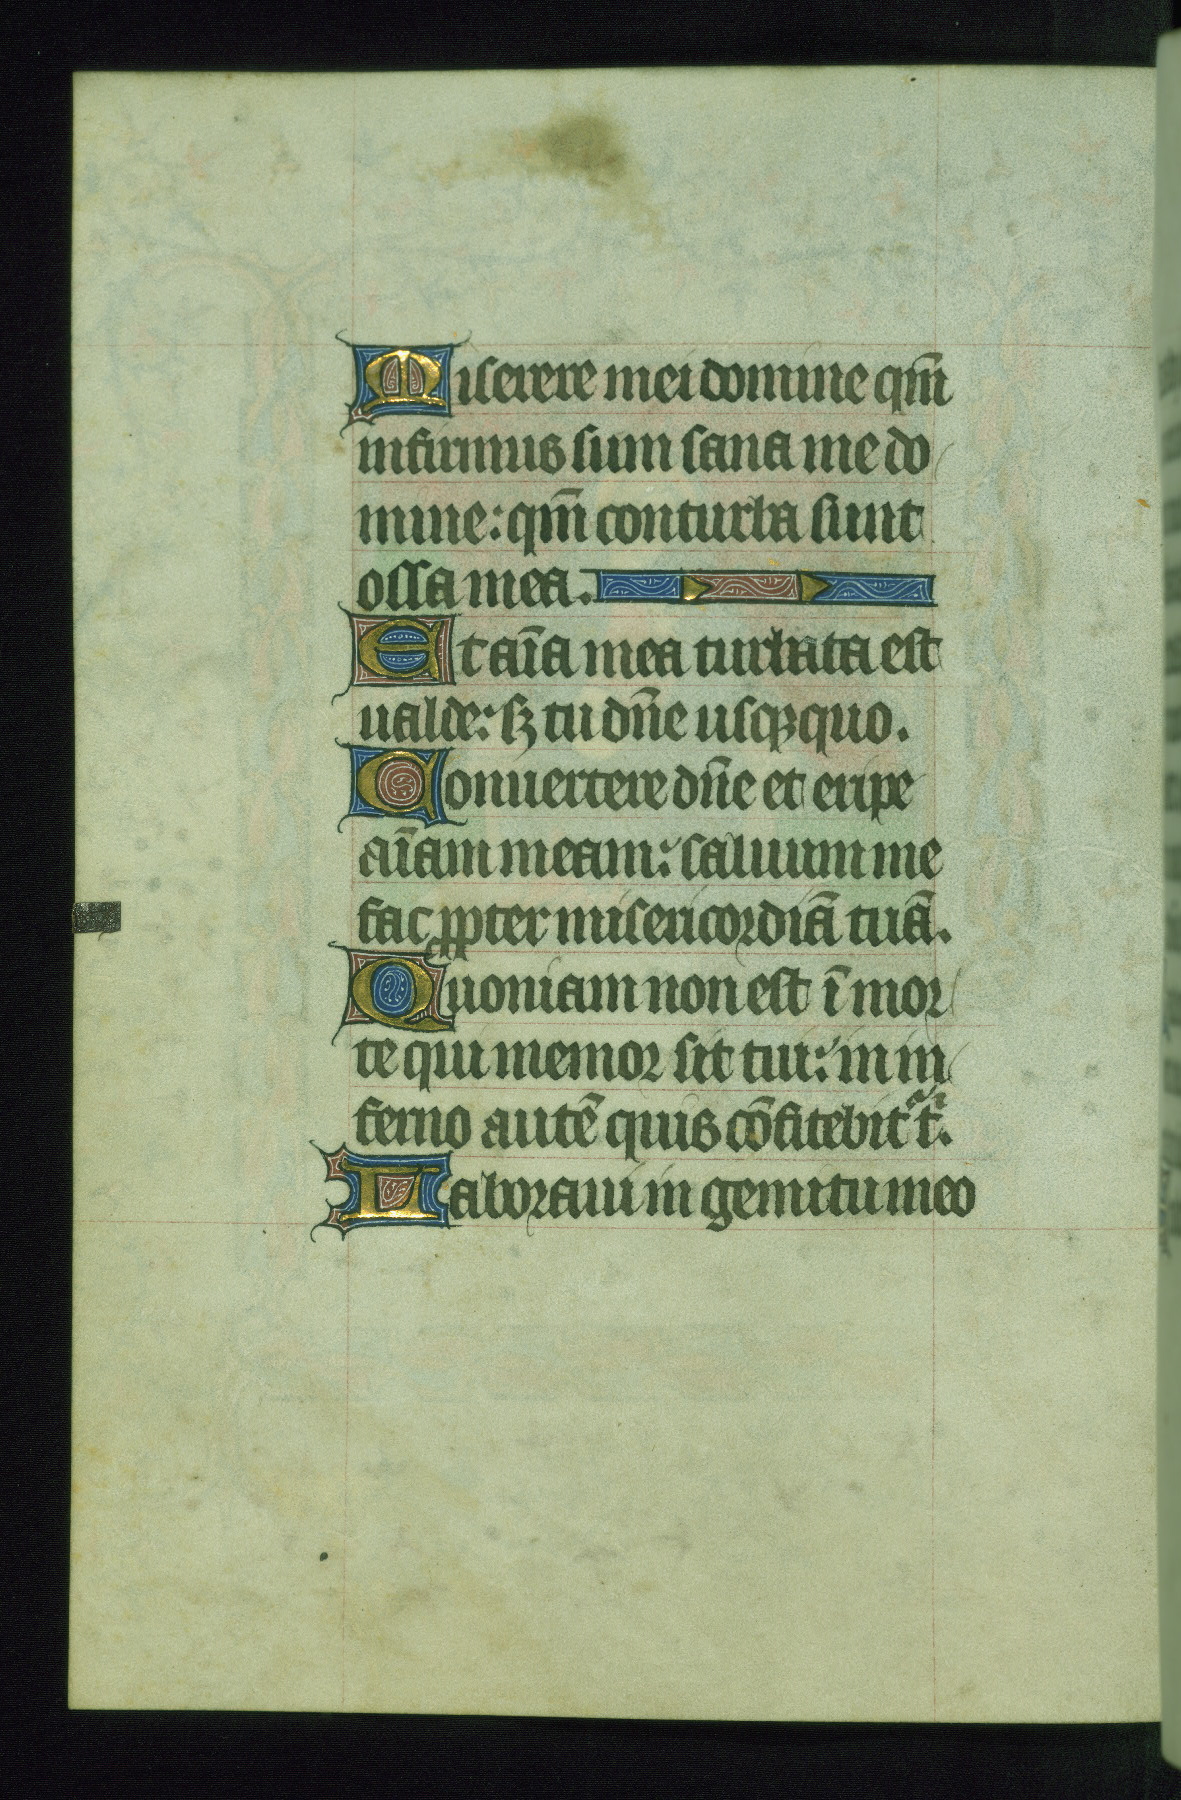 Miserere mei domine qm̅
infirmus sum sana me do
mine: qm̅ conturba sunt
ossa mea.
Et ai̅a mea turbata est
ualde: sꝫ tu dn̅e usqꝫquo.
Conuertere dn̅e et eripe
ai̅am meam: saluum me
fac ꝓpter misericordiā tuā.
Quoniam non est ī mor
te qui memor sit tui: in in
ferno autē quis cōfitebitᷣ tⁱ.
Laboraui in gemitu meo